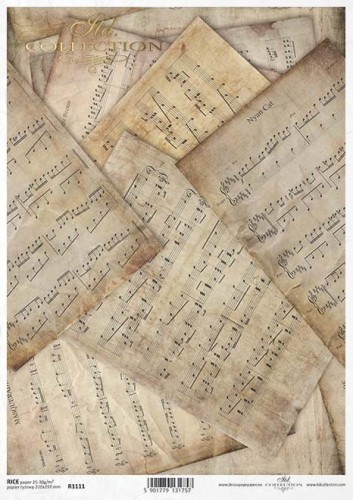 ITD.
COLLECTION
Nyan Cat
RICE paper 25-30g/m²
papier ryżowy 210x297 mm
R1111
5 901779 131757
www.decoupagepaper.eu
ITD.
COLLECTION
www.itdcollection.com